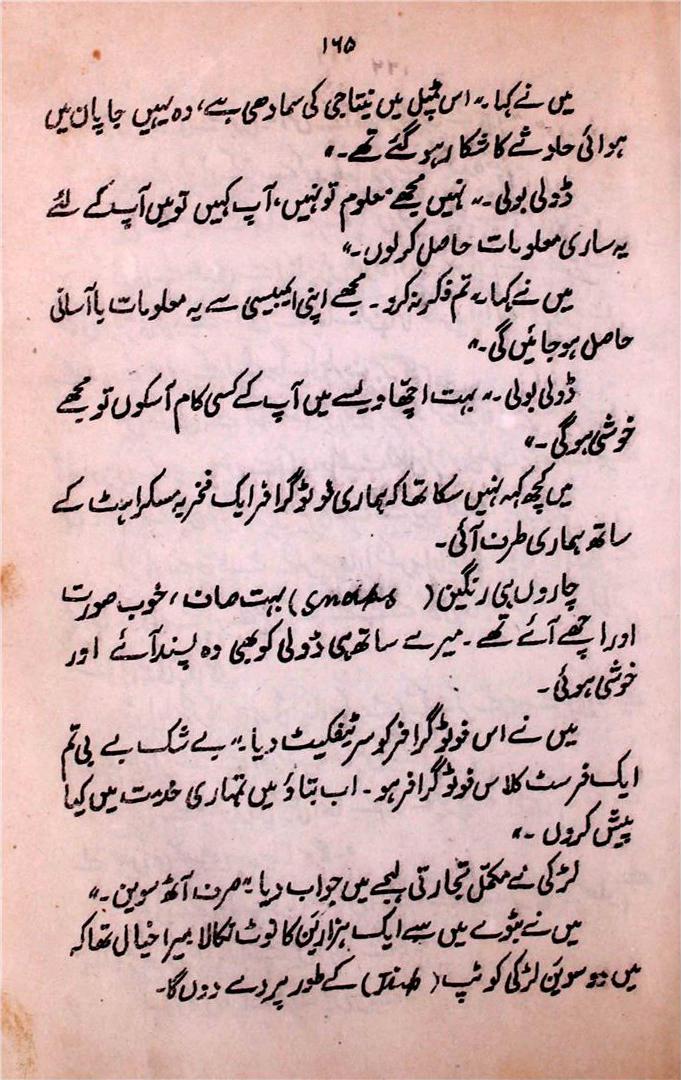 ۱۶۵
میں نے کہا۔" اس ٹمپل میں نیتاجی کی سمادھی ہے، وہ یہیں جاپان میں
ہوائی حادثے کا شکار ہو گئے تھے۔"
ڈولی بولی۔" نہیں مجھے معلوم تو نہیں، آپ کہیں تو میں آپ کے لئے
یہ ساری معلومات حاصل کر لوں۔"
میں نے کہا۔" تم فکر نہ کرو۔ مجھے اپنی ایمبیسی سے یہ معلومات باآسانی
حاصل ہو جائیں گی۔"
ڈولی بولی۔" بہت اچھا ویسے میں آپ کے کسی کام آسکوں تو مجھے
خوشی ہوگی۔"
میں کچھ کہہ نہیں سکا تھا کہ ہماری فوٹوگرافر ایک فخریہ مسکراہٹ کے
ساتھ ہماری طرف آئی۔
چاروں ہی رنگین (snaps) بہت صاف، خوب صورت
اور اچھے آئے تھے۔ میرے ساتھ ہی ڈولی کو بھی وہ پسند آئے اور
خوشی ہوئی۔
میں نے اس فوٹوگرافر کو سرٹیفکیٹ دیا۔" بے شک بے بی تم
ایک فرسٹ کلاس فوٹوگرافر ہو۔ اب بتاؤ میں تمہاری خدمت میں کیا
پیش کروں۔"
لڑکی نے مکمل تجارتی لہجے میں جواب دیا۔" صرف آٹھ سوین۔"
میں نے بٹوے میں سے ایک ہزار یَن کا نوٹ نکالا میرا خیال تھا کہ
میں دو سوین لڑکی کو ٹپ ( ) کے طور پر دے دوں گا۔